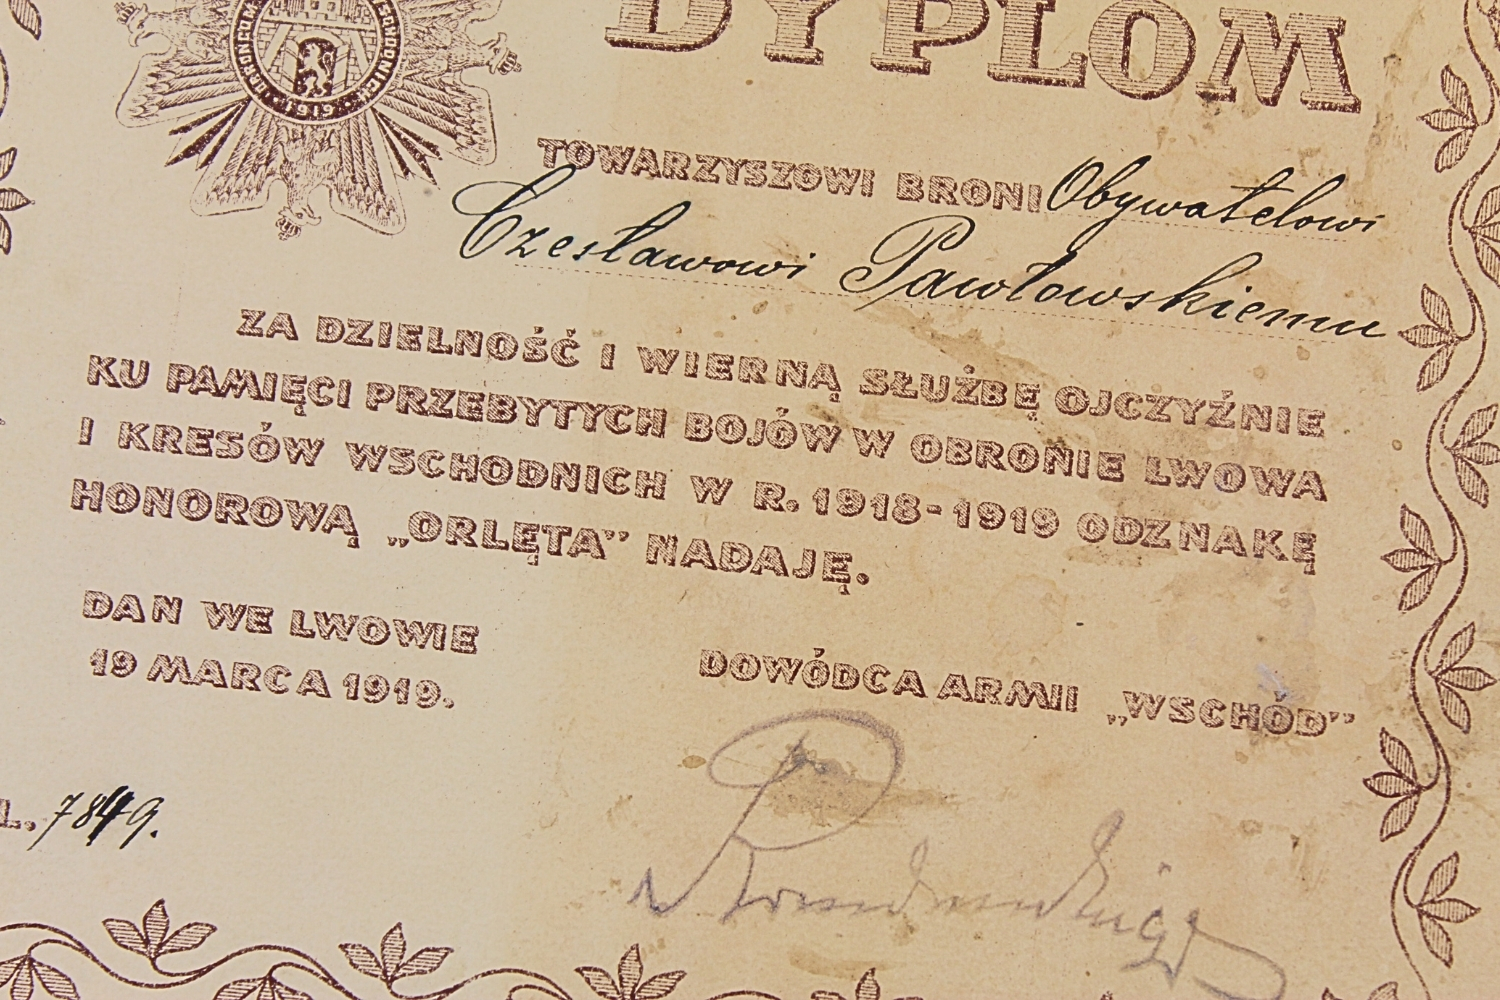 DYPLOM
1919
TOWARZYSZOWI BRONI Obywatelowi
Czesławowi Pawłowskiemu
ZA DZIELNOŚĆ I WIERNĄ SŁUŻBĘ OJCZYŹNIE
KU PAMIĘCI PRZEBYTYCH BOJÓW W OBRONIE LWOWA
I KRESÓW WSCHODNICH W R. 1918-1919 ODZNAKĘ
HONOROWĄ „ORLĘTA” NADAJĘ.
DAN WE LWOWIE
19 MARCA 1919.
DOWÓDCA ARMII „WSCHÓD”
L. 7849.